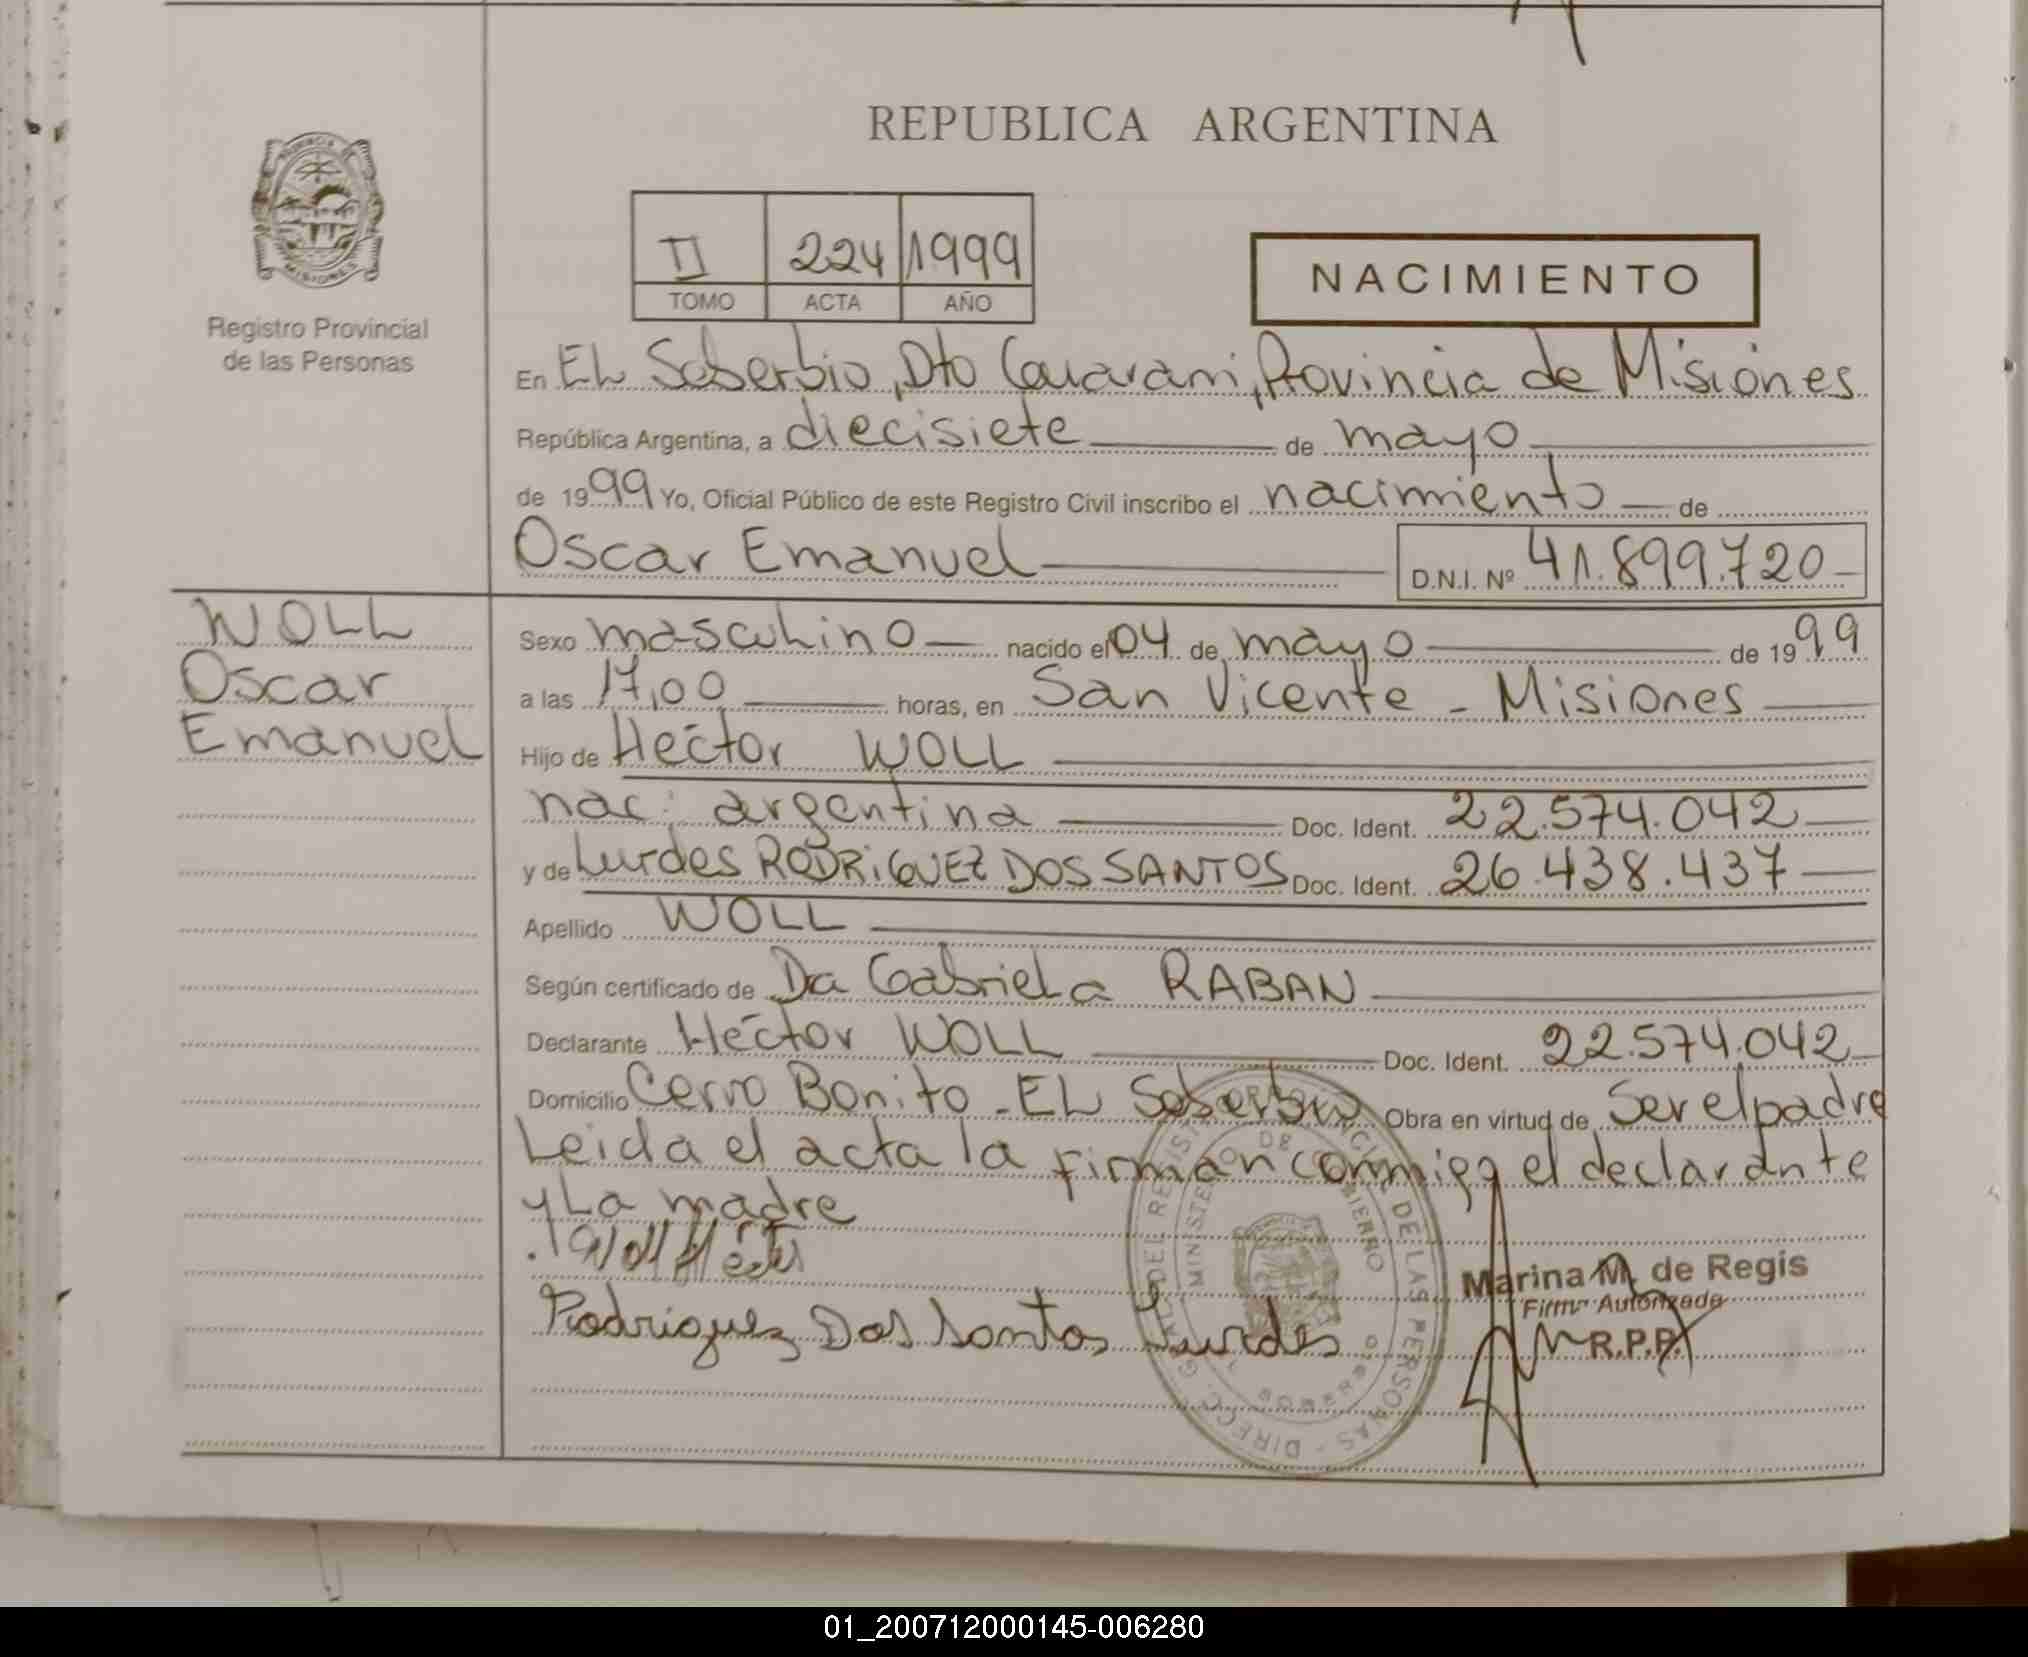 REPUBLICA ARGENTINA
PROVINCIA DE
MISIONES
Registro Provincial
de las Personas
II 224 1999
TOMO ACTA AÑO
NACIMIENTO
En EL Soberbio, Dto Guarani, Provincia de Misiones
República Argentina, a diecisiete de mayo
de 1999 Yo, Oficial Público de este Registro Civil inscribo el nacimiento de
Oscar Emanuel D.N.I. Nº 41.899.720
WOLL
Oscar
Emanuel
Sexo masculino nacido el 04 de mayo de 1999
a las 17,00 horas, en San Vicente - Misiones
Hijo de Héctor WOLL
nac: argentina Doc. Ident. 22.574.042
y de Lurdes RODRIGUEZ DOS SANTOS Doc. Ident. 26.438.437
Apellido WOLL
Según certificado de Dra Gabriela RABAN
Declarante Héctor WOLL Doc. Ident. 22.574.042
Domicilio Cerro Bonito - EL Soberbio Obra en virtud de Ser el padre
Leida el acta la firman conmigo el declarante
y La madre
Rodriguez Dos Santos Lurdes
Marina M. de Regis
Firma Autorizada
R.P.P.
DIRECC. GRAL. DEL REGISTRO PROVINCIAL DE LAS PERSONAS
MINISTERIO DE GOBIERNO
01_200712000145-006280